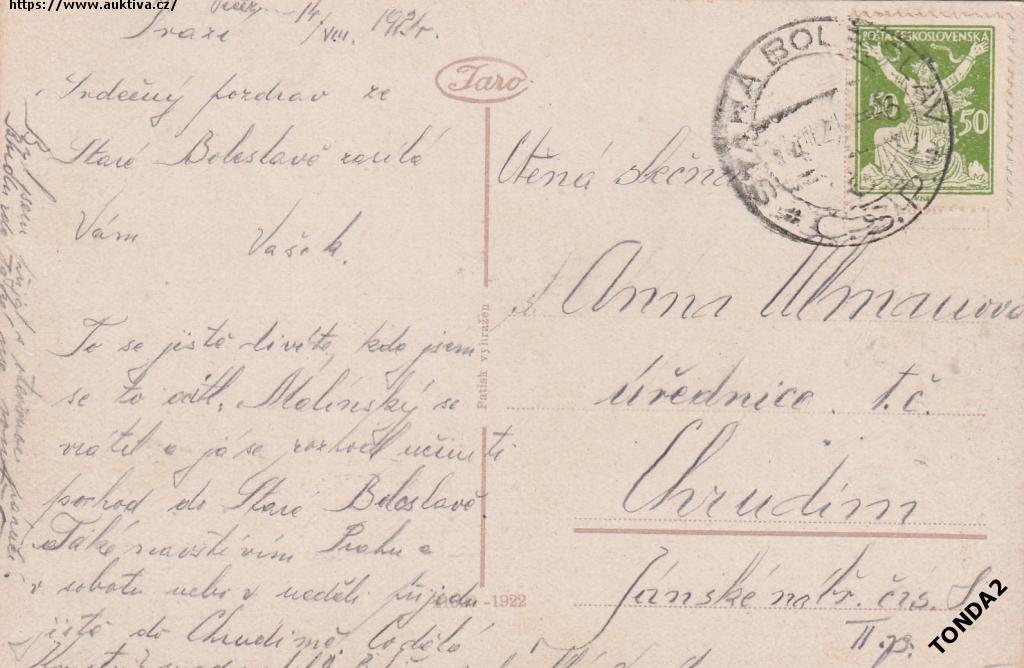 https://www.auktiva.cz/
14/VIII. 1924.
Srdečný pozdrav ze
Staré Boleslavě zasílá
Vám Vašek.
To se jistě divíte, kde jsem
se to octl. Málinský se
vrátil a já se rozhodl učiniti
pochod do Staré Boleslavě
Také navštívím Prahu a
v sobotu nebo v neděli přijedu
jistě do Chrudimě. Codělá
Byl jsem
Taro
Patisk vyhražen
-1922
POŠTA ČESKOSLOVENSKÁ
50 50
STARÁ BOLESLAV
Č.S.P.
Ctěná slečna
Anna Ulmanová
úřednice t.č.
Chrudim
Jánské nábř. čís.
II. p.
TONDA2